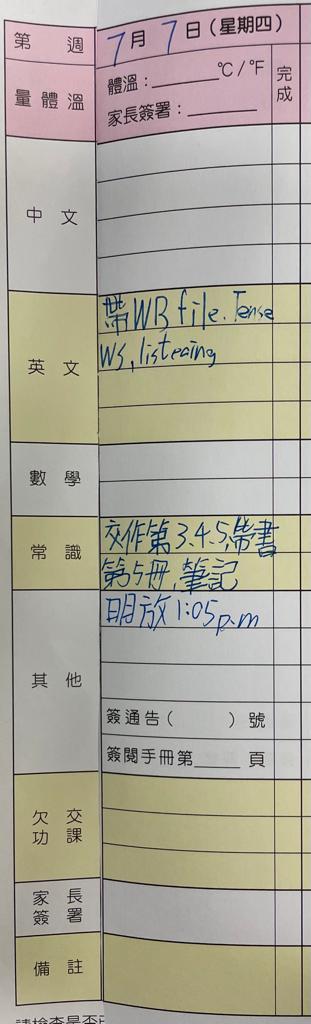 第 週 7月7日(星期四)
量體溫 體溫:______ °C/°F 完成
家長簽署:______
中 文
英 文 帶WB file. Tense
WS, listening
數 學
常 識 交作第3.4.5,帶書
第5冊,筆記
其 他 明放1:05p.m
簽通告( )號
簽閱手冊第____頁
欠交功課
家長簽署
備 註